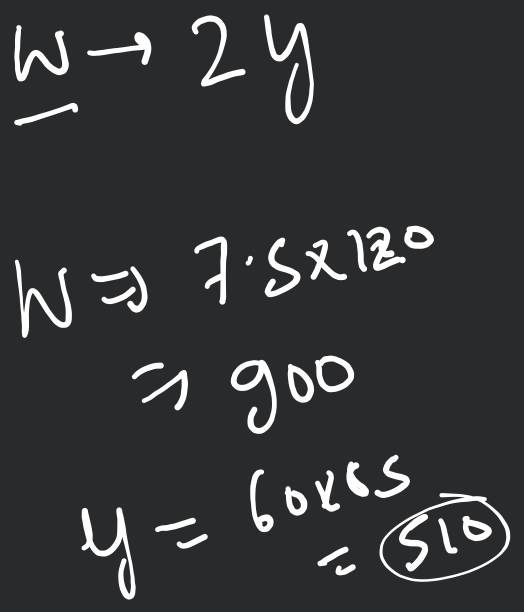 W → 2y
W ⇒ 7.5x120
⇒ 900
y = 60x85
= 510